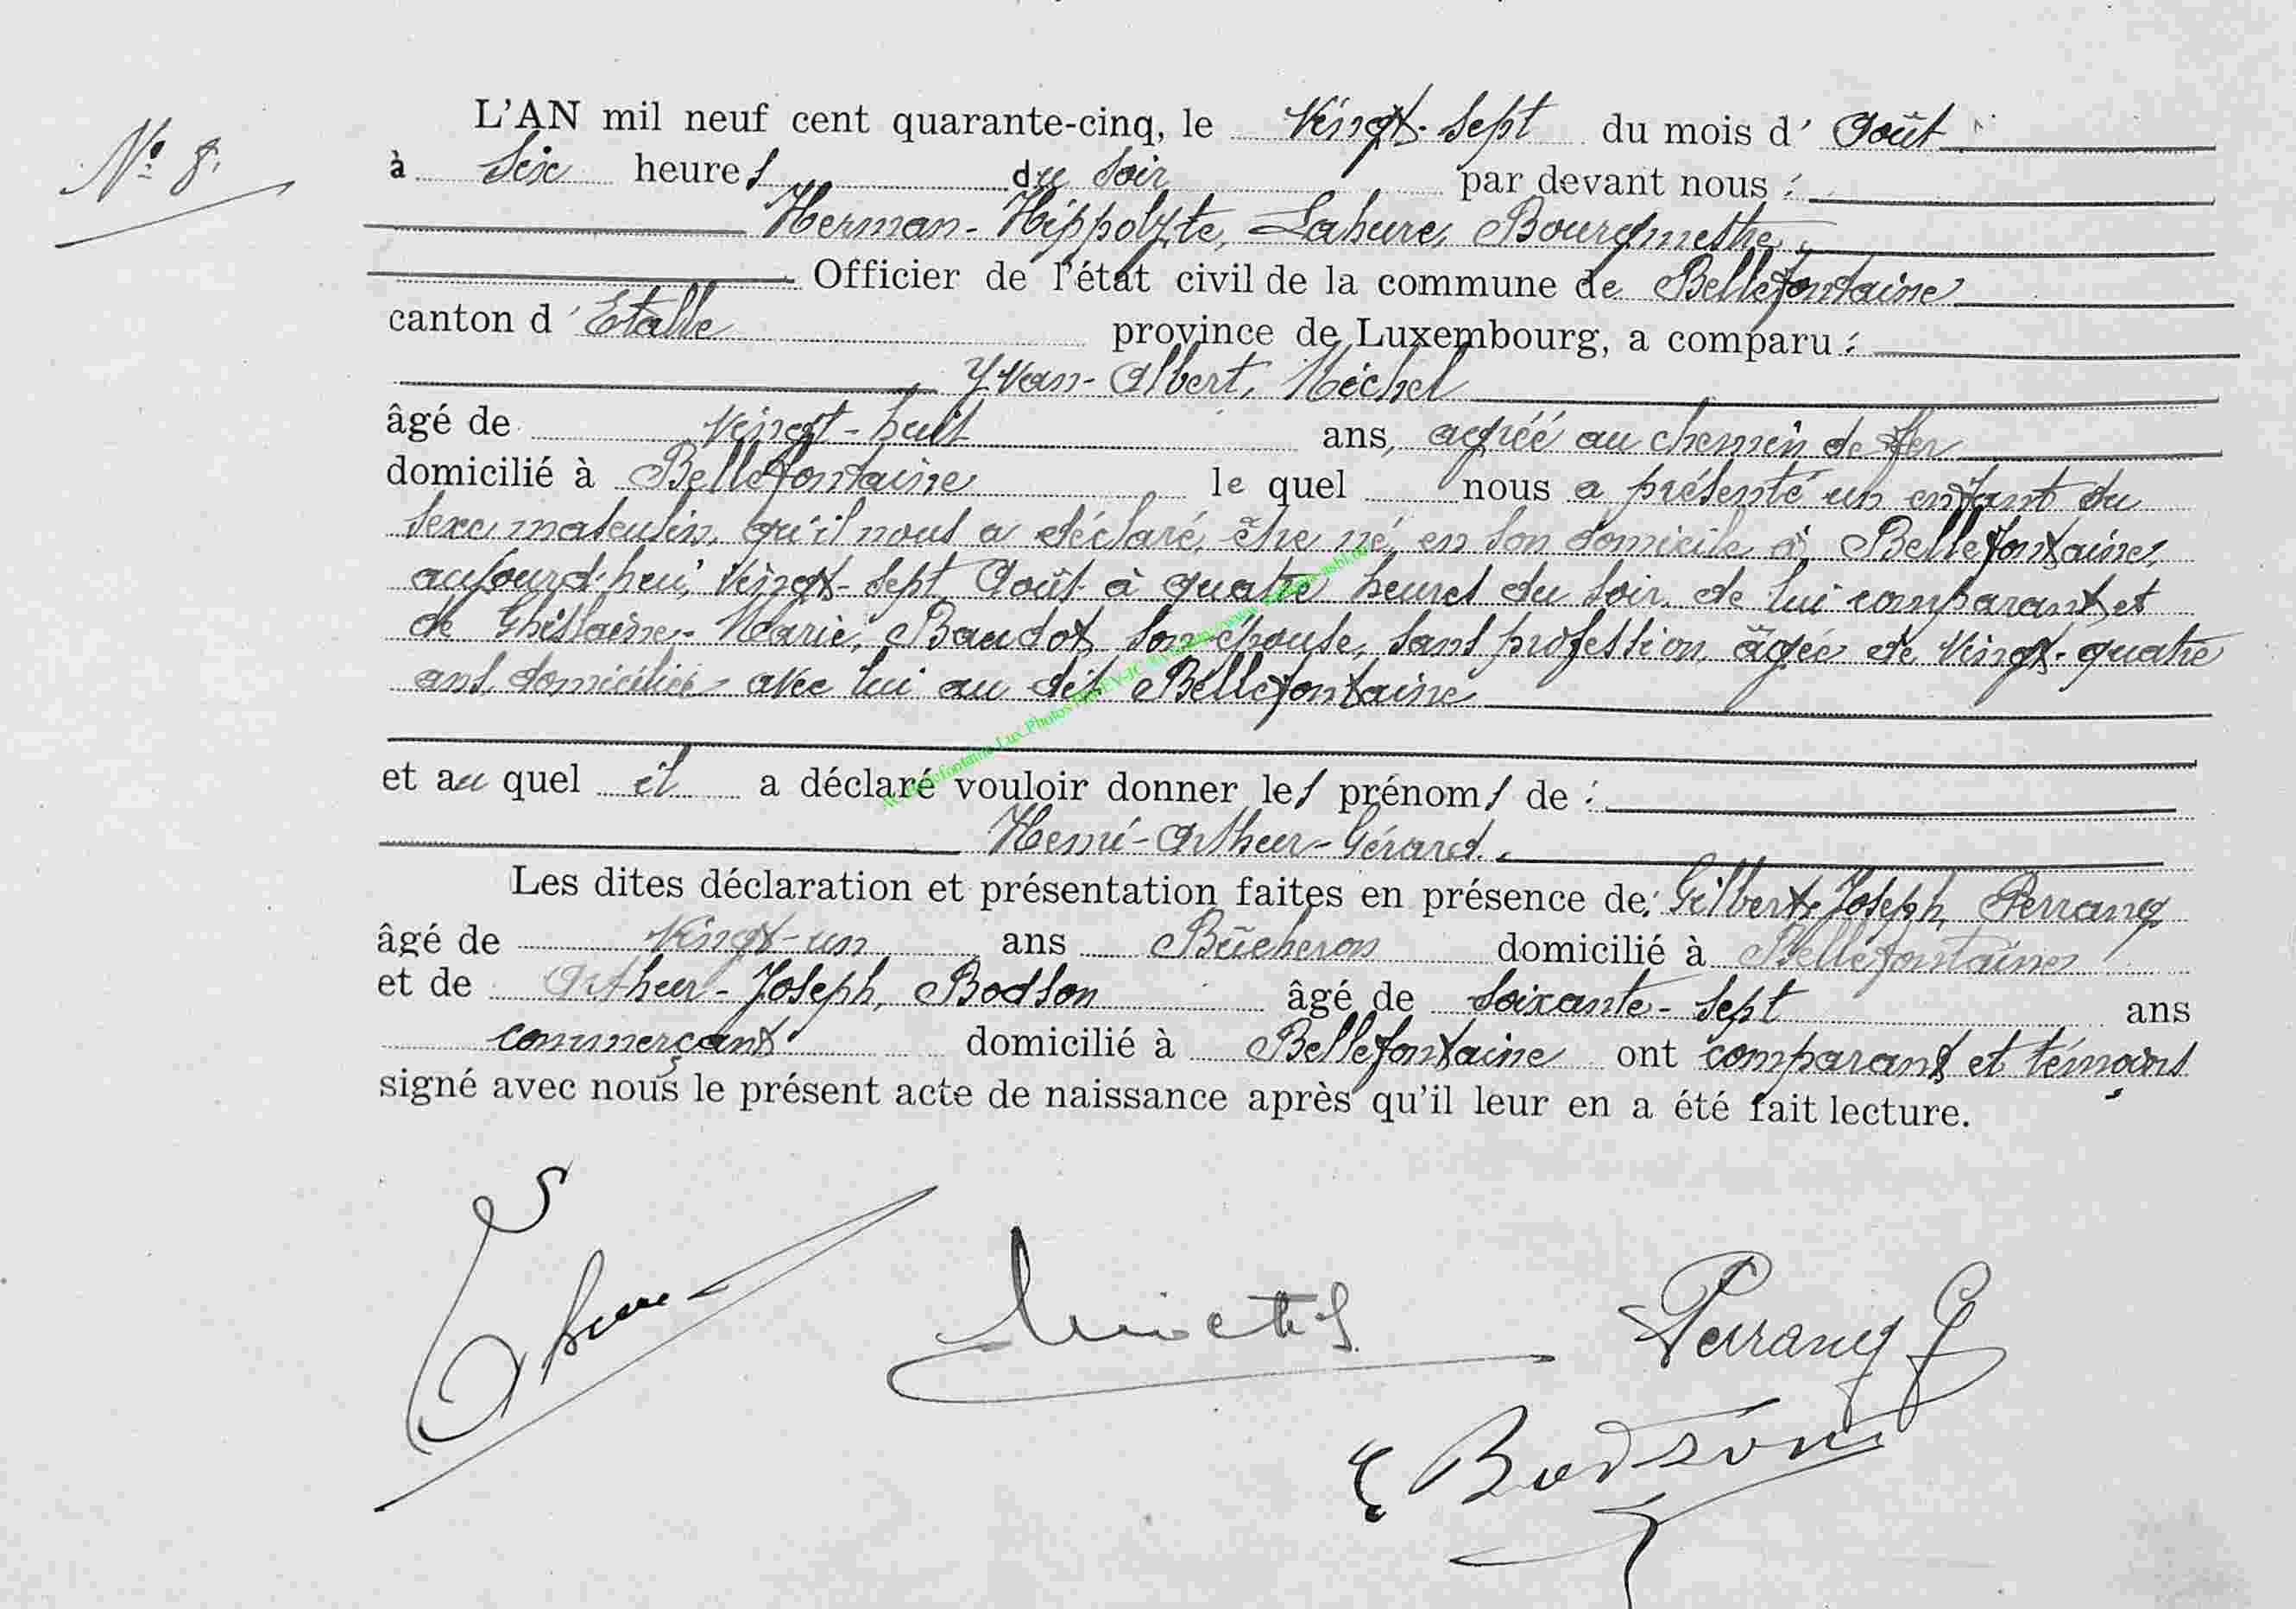 L'AN mil neuf cent quarante-cinq, le Vingt-Sept du mois d' Août
N° 8.
à Six heures du Soir par devant nous :
Herman-Hippolyte, Lahure, Bourgmestre,
Officier de l'état civil de la commune de Bellefontaine
canton d' Etalle province de Luxembourg, a comparu :
Yvan-Albert, Michel
âgé de Vingt-huit ans, agréé au chemin de fer
domicilié à Bellefontaine le quel nous a présenté un enfant du
sexe masculin, qu'il nous a déclaré, être né, en son domicile à Bellefontaine,
aujourd'hui, Vingt-Sept Août à quatre heures du soir, de lui comparant et
de Ghislaine-Marie, Baudot, son épouse, sans profession, âgée de Vingt-quatre
ans, domiciliée avec lui au dit Bellefontaine
et au quel il a déclaré vouloir donner les prénoms de :
Henri-Arthur-Gérard.
Les dites déclaration et présentation faites en présence de: Gilbert-Joseph, Perrang
âgé de Vingt-un ans Bûcheron domicilié à Bellefontaine
et de Arthur-Joseph, Bodson âgé de Soixante-Sept ans
commerçant domicilié à Bellefontaine ont comparant et témoins
signé avec nous le présent acte de naissance après qu'il leur en a été fait lecture.
Perrang G
Bodson